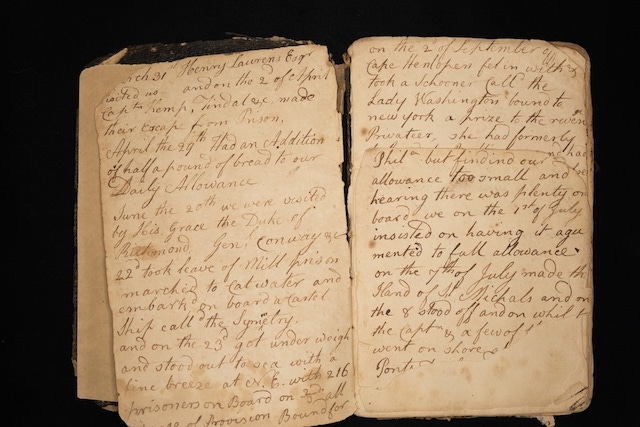 rch 31st Henry Lawrens Esqr
visited us and on the 2 of April
Capts Kemp, Tindal &c. made
their Escape from Prison,
April the 29th Had an Addition
of half a pound of bread to our
Daily Allowance
June the 20th we were visited
by his Grace the Duke of
Richmond, Genl Conway &c
22d took leave of Mill prison
marched to Catwater and
embarkd on board a Cartel
Ship calld the Symetry.
and on the 23d got under weigh
and stood out to sea with a
fine breeze at N. E. with 216
prisoners on Board on 2d all
of Provision Bound for
on the 2d of September of
Cape Henlopen fel in with &
took a Schooner Calld the
Lady Washington bound to
new york a prize to the
Privatier, she had formerly
had
Phila but finding our
allowance too small and
hearing there was plenty on
board we on the 1st of July
insisted on having it agu
mented to full allowance
on the 7th of July made the
Iland of St Michals and on
the 8 stood off and on whilst
the Capt & a few of
went on shore
Pont